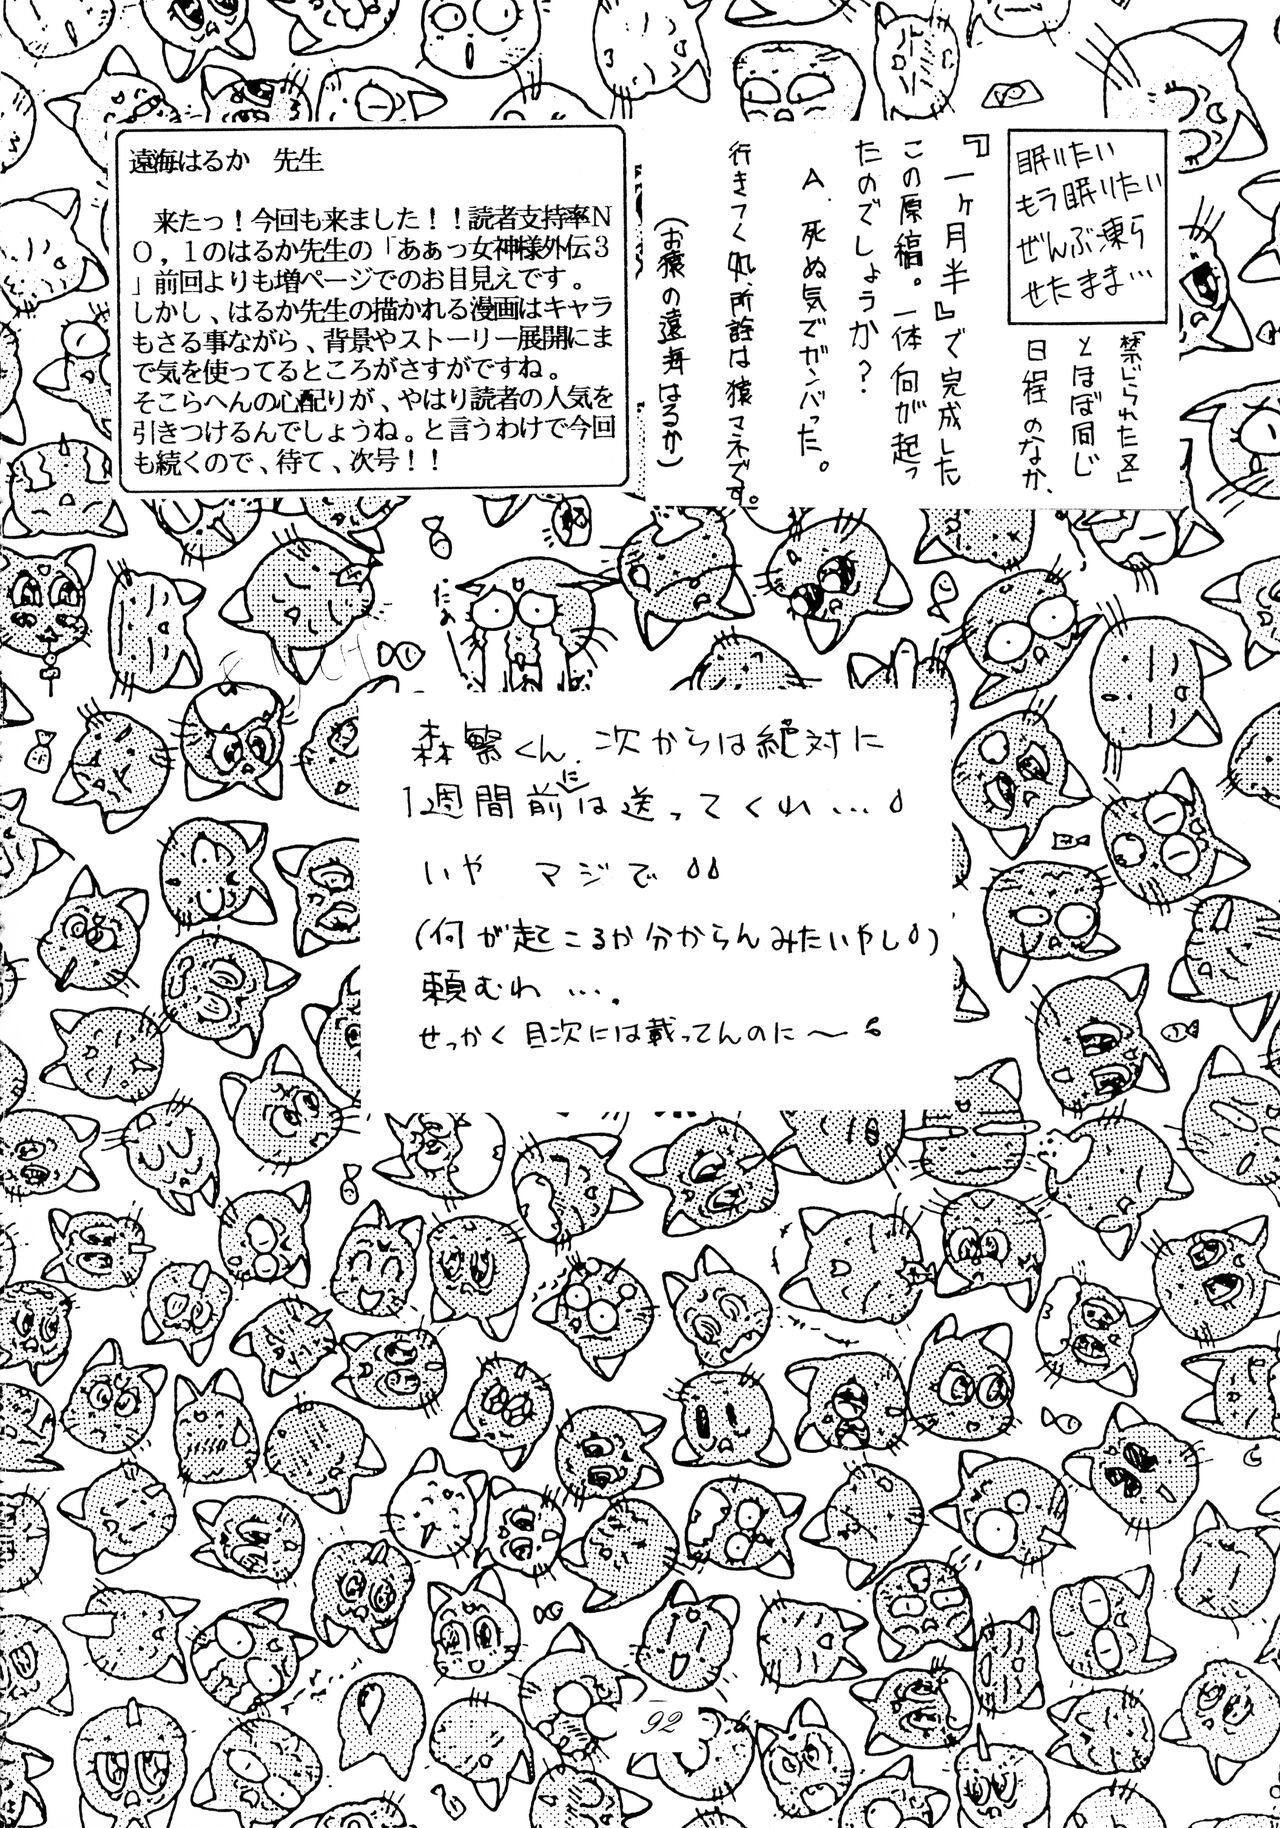 眠りたい
もう眠りたい
ぜんぶ凍ら
せたまま…
「禁じられた区」
とほぼ同じ
日程のなか、
『一ヶ月半』で完成した
この原稿。一体何が起っ
たのでしょうか？
A. 死ぬ気でガンバった。
行きつく処、所詮は猿マネです。
(お猿の遠海はるか)
遠海はるか　先生
来たっ！今回も来ました！！読者支持率N
O，1のはるか先生の「あぁっ女神様外伝3
」前回よりも増ページでのお目見えです。
しかし、はるか先生の描かれる漫画はキャラ
もさる事ながら、背景やストーリー展開にま
で気を使ってるところがさすがですね。
そこらへんの心配りが、やはり読者の人気を
引きつけるんでしょうね。と言うわけで今回
も続くので、待て、次号！！
森繁くん、次からは絶対に
1週間前には送ってくれ…
いや　マジで
(何が起こるか分からんみたいやし)
頼むわ….
せっかく目次には載ってんのに〜
92